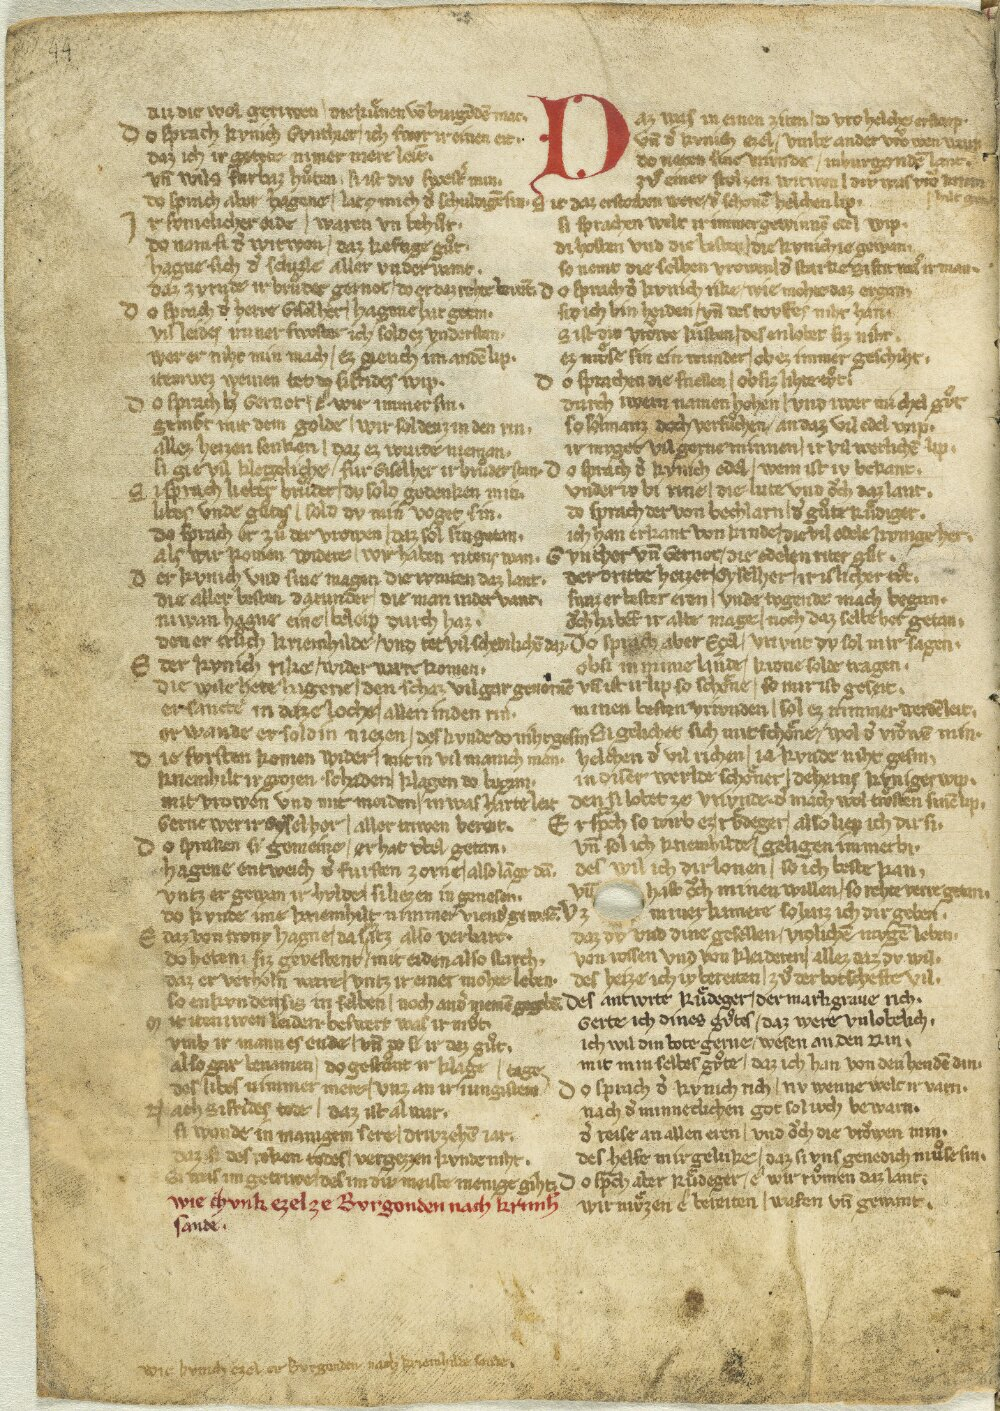 44
daz die wol getriwen / die kuͤnen vō burgōdē mac.
D o sprach kynich Gvnther / ich swor ir einen eit.
daz ich ir getete nimer mere leit.
vn̄ wils furbaz huͤten / si ist div swest' min.
do sprach aber hagene / lat mich d' schuldige sin.
I r svmelicher eide / waren vn behuͤt.
do namē si d' witwen / daz kreftige guͤt.
hagne sich d' schuzle aller vnder want.
daz zvrnde ir bruder gernot / do er daz rehte bevant.
D o sprach d' herre Giselher / hagene hat getan.
vil leides miner swester ich solde ez vnderstan.
wer er niht min mach / ez giench im an dē lip.
iteniwez weinen tet do sifrides wip.
D o sprach h' Gernot / e wir immer sin.
gemuͤt mit dem golde / wir soldenz in den rin.
allez heizen senken / daz ez wurde nieman.
si gie vil klegeliche / fur Giselher ir bruder stan.
S i sprach lieber bruder / dv solt gedenken min.
libes vnde guͤtes / solt dv min voget sin.
do sprach er zuͤ der vrowen / daz sol sin getan.
als wir komen widere / wir haben ritens wan.
D er kynich vnd sine magen die rvmten daz lant.
die aller besten darunder / die man inder vant.
niwan hagne eine / beleip durch haz.
den er truͤch kriemhilde / vnd tet vil schedlichē daz.
E der kynich riche / wider ware komen.
die wile hete hagene / den schaz vil gar genomē
er sancte in daze loche / allen in den rin.
er wande er sold in niezen / des kvnde do niht gesin
D ie fvrsten komen wider / mit in vil manich man.
kriemhilt ir grozen schaden / klagen do began.
mit vrowen vnd mit meiden / in was harte leit
Gerne wer ir Gyselher / aller triwen bereit.
D o sprachen si gemeine / er hat vbel getan.
hagene entweich d' fursten zorne / also lāge dā.
vntz er gewan ir hulde / si liezen in genesen.
do kvnde ime kriemhilt nimmer viend' gewesē.
E daz von trony hagne / da schatz also verbarc.
do hetenz siz gevestent / mit eiden also starch.
daz er verholn ware / vntz ir einer mohte leben.
so enkvndensis in selben / noch and' niemē gegebē.
M it iteniwen leiden beswert was ir muͤt.
vmb ir mannes ende / vn̄ do si ir daz guͤt.
also gar benamen / do gestuͤnt ir klage / tage
des libes nimmer mere / vnz an ir iungisten
N ach Sifrides tode / daz ist al war.
si wonde in manigem sere / driwzehen iar.
daz si des recken todes / vergezzen kvnde niht.
si was im getriwe / des im div meiste menige giht.
wie chvnk ezel ze Bvrgonden nach krimh'
sande.
D az was in einen ziten / do vro helche erstarp.
vn̄ d' kynich ezel / vmbe ander vrowen warp
do rieten sine mvnde / in burgondē lant.
zv einer stolzen witwen / div was vro kriem
hilt gen.
S it daz erstorben were / d' schonē helchen lip.
si sprachen welt ir immer gewinnē edel wip.
di hosten vnd die besten / die kynich ie gewan.
so nemt die selben vrowen / d' starke sifrit was ir man.
D o sprach d' kynich rike / wie mohte daz ergan.
sit ich bin heiden / vn̄ des toufes niht han.
S ist div vrowe kristen / des enlobet siz niht.
ez muͤse sin ein wunder / ob ez immer geschiht.
D o sprachen die snellen / ob siz lihte tuͤt.
durch iwern namen hohen / vnd iwer michel guͤt
so solmanz doch versuͦchen / an daz vil edel wip.
ir mvget vil gerne minnen / ir vil werlichē lip.
D o sprach d' kynich edel / wem ist iv bekant.
vnder iv bi rine / die lute vnd oͮch daz lant.
do sprach der von bechlarn / d' guͤte Ruͤdiger.
ich han erkant von kinde / die vil edele kvnige her.
G vncher vn̄ Gernot / die edelen riter guͤt.
der dritte heizet Gyselher / ir islicher tuͤt.
swaz er bester eren / vnde togende mach began.
oͮch habēt ir alte mage / noch daz selbe her getan.
Do sprach aber Ezel / vrivnt dv sol mir sagen.
ob si in mime lande / krone solde tragen.
vn̄ ist ir lip so schoͤne / so mir ist geseit.
minen besten vrivnden / sol ez nimmer werdē leit.
Si gelichet sich mit schoͤne / wol d' vroͮwē min.
helchen d' vil richen / ia kvnde niht gesin.
in diser werlde schoͤner / deheins kyniges wip.
den si lobet ze vrivnde d' mach wol trosten sinē lip.
E r sp̄ch so wirb ez Ruͤdeger / also liep ich dir si.
vn̄ sol ich kriemhilde / geligen immer bi.
des wil ich dir lonen / so ich beste kan,
vn̄ hast oͮch minen willen / so rehte verre getan.
V z miner kamere so haiz ich dir geben.
daz dv vnd dine gesellen / vrolichē mvgē leben.
von rossen vnd von kleideren / allez daz dv wil.
des heize ich iv bereiten / zuͤ der botscheste vil.
Des antwrte Ruͤdeger / der markgraue rich.
Gerte ich dines guͦtes / daz were vnlobelich.
ich wil din bote gerne / wesen an den Rin.
mit min selbes guͦte / daz ich han von den hendē din.
D o sprach d' kynich rich / nv wenne welt ir varn.
nach d' minneclichen got sol ivch bewarn.
d' reise an allen eren / vnd oͮch die vroͮwen min.
des helfe mir gelucke / daz si vns genedich muͦse sin.
D o sp̄ch aber Ruͤdeger / e' wir ruͦmen daz lant.
wir muͤzen e' bereiten / wafen vn̄ gewant.
wie kynich ezel ze Burgonden nach kriemhilde sande.